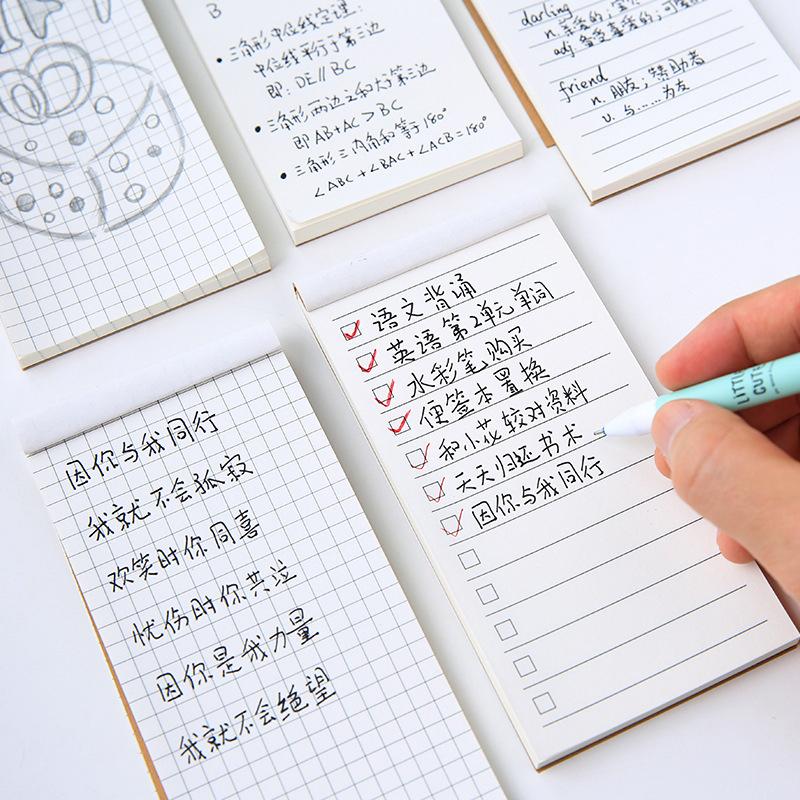 B
三角形中位线定理：
中位线平行于第三边
即：DE//BC
三角形两边之和大于第三边
即AB+AC>BC
三角形三内角和等于180°
∠ABC+∠BAC+∠ACB=180°
darling
n. 亲爱的；宝贝
adj. 备受喜爱的；可爱
friend
n. 朋友；赞助者
v. 与……为友
语文背诵
英语第2单元单词
水彩笔购买
便签本置换
和小花较对资料
天天归还书术
因你与我同行
因你与我同行
我就不会孤寂
欢笑时你同喜
忧伤时你共泣
因你是我力量
我就不会绝望
LITTLE
CUTE